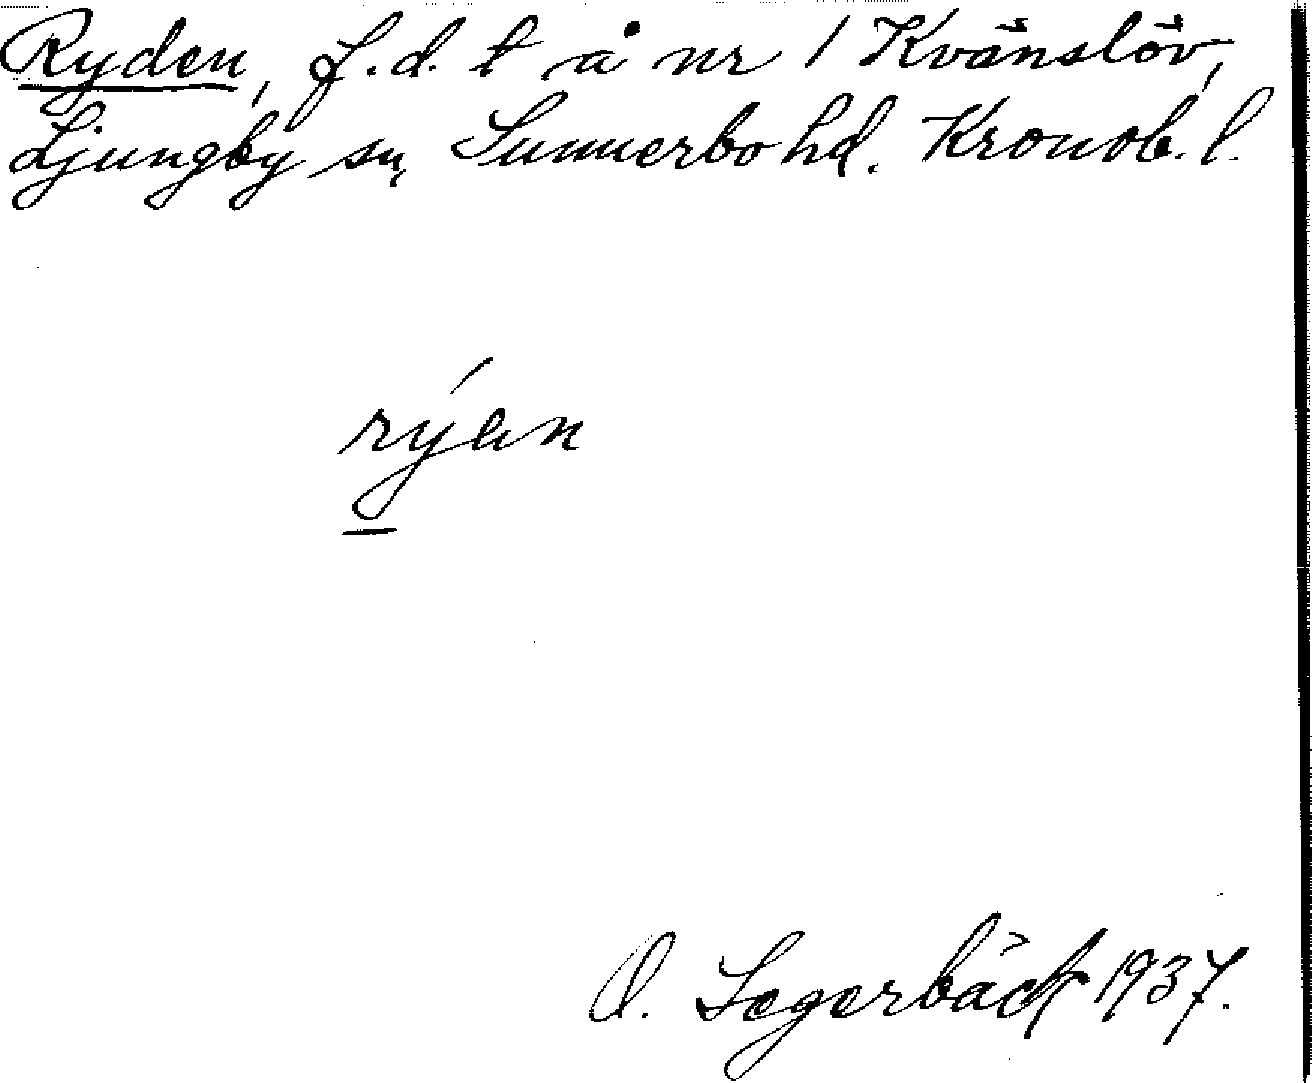 Ryden, f.d. t å nr 1 Kvänslöv,
Ljungby sn, Sunnerbo hd. Kronob. l.
rýan
O. Segerbäck 1937.